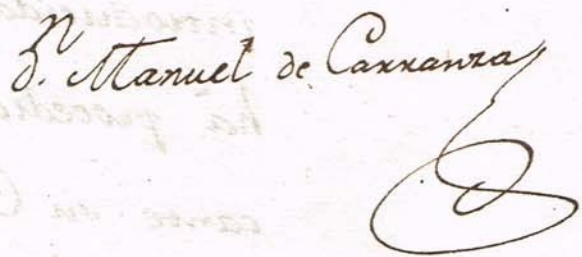 Dn. Manuel de Carranza